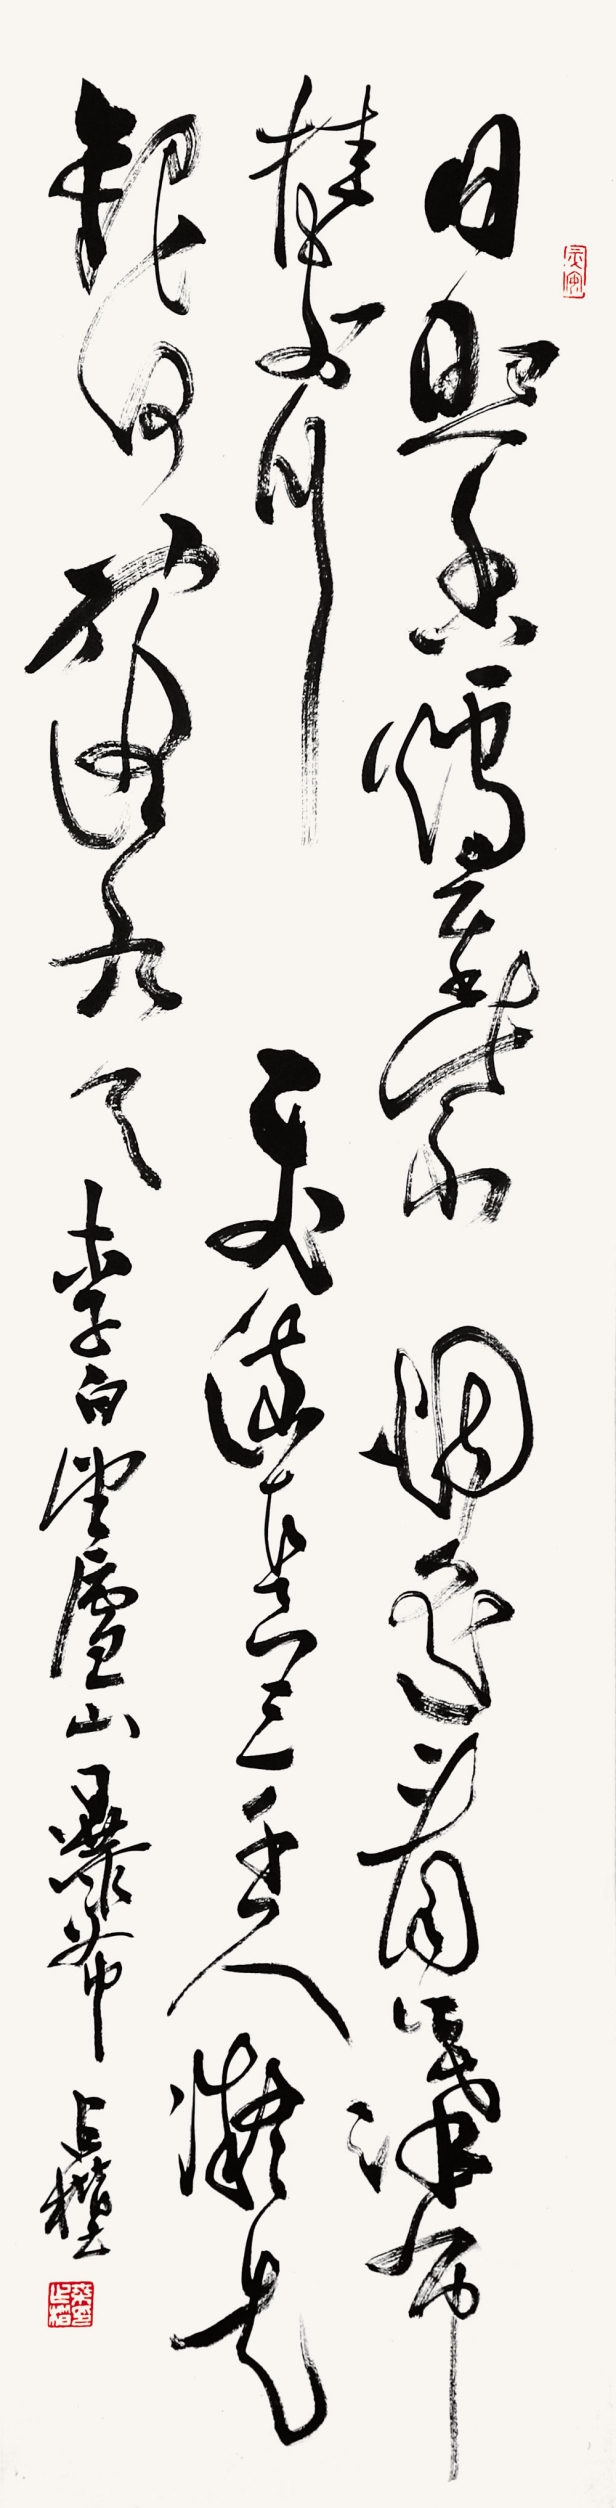 日照香爐生紫烟遥看瀑布
挂前川飛流直下三千尺疑是
銀河落九天 李白望廬山暴布